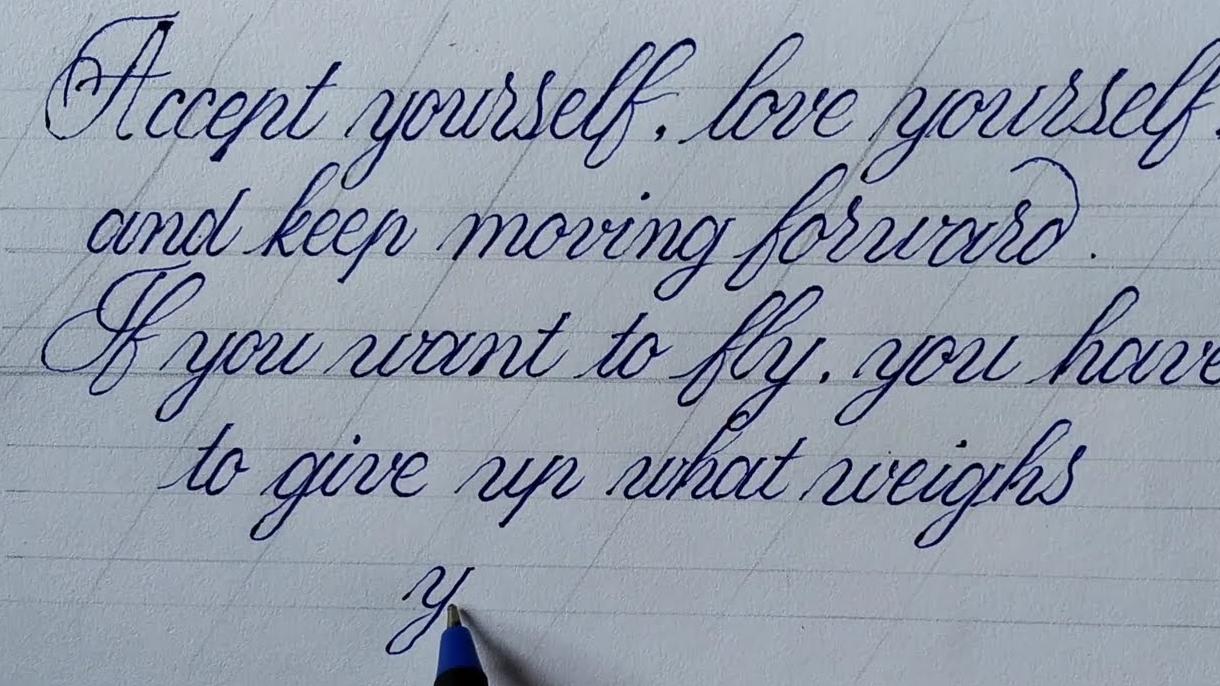 Accept yourself, love yourself,
and keep moving forward.
If you want to fly, you have
to give up what weighs
y